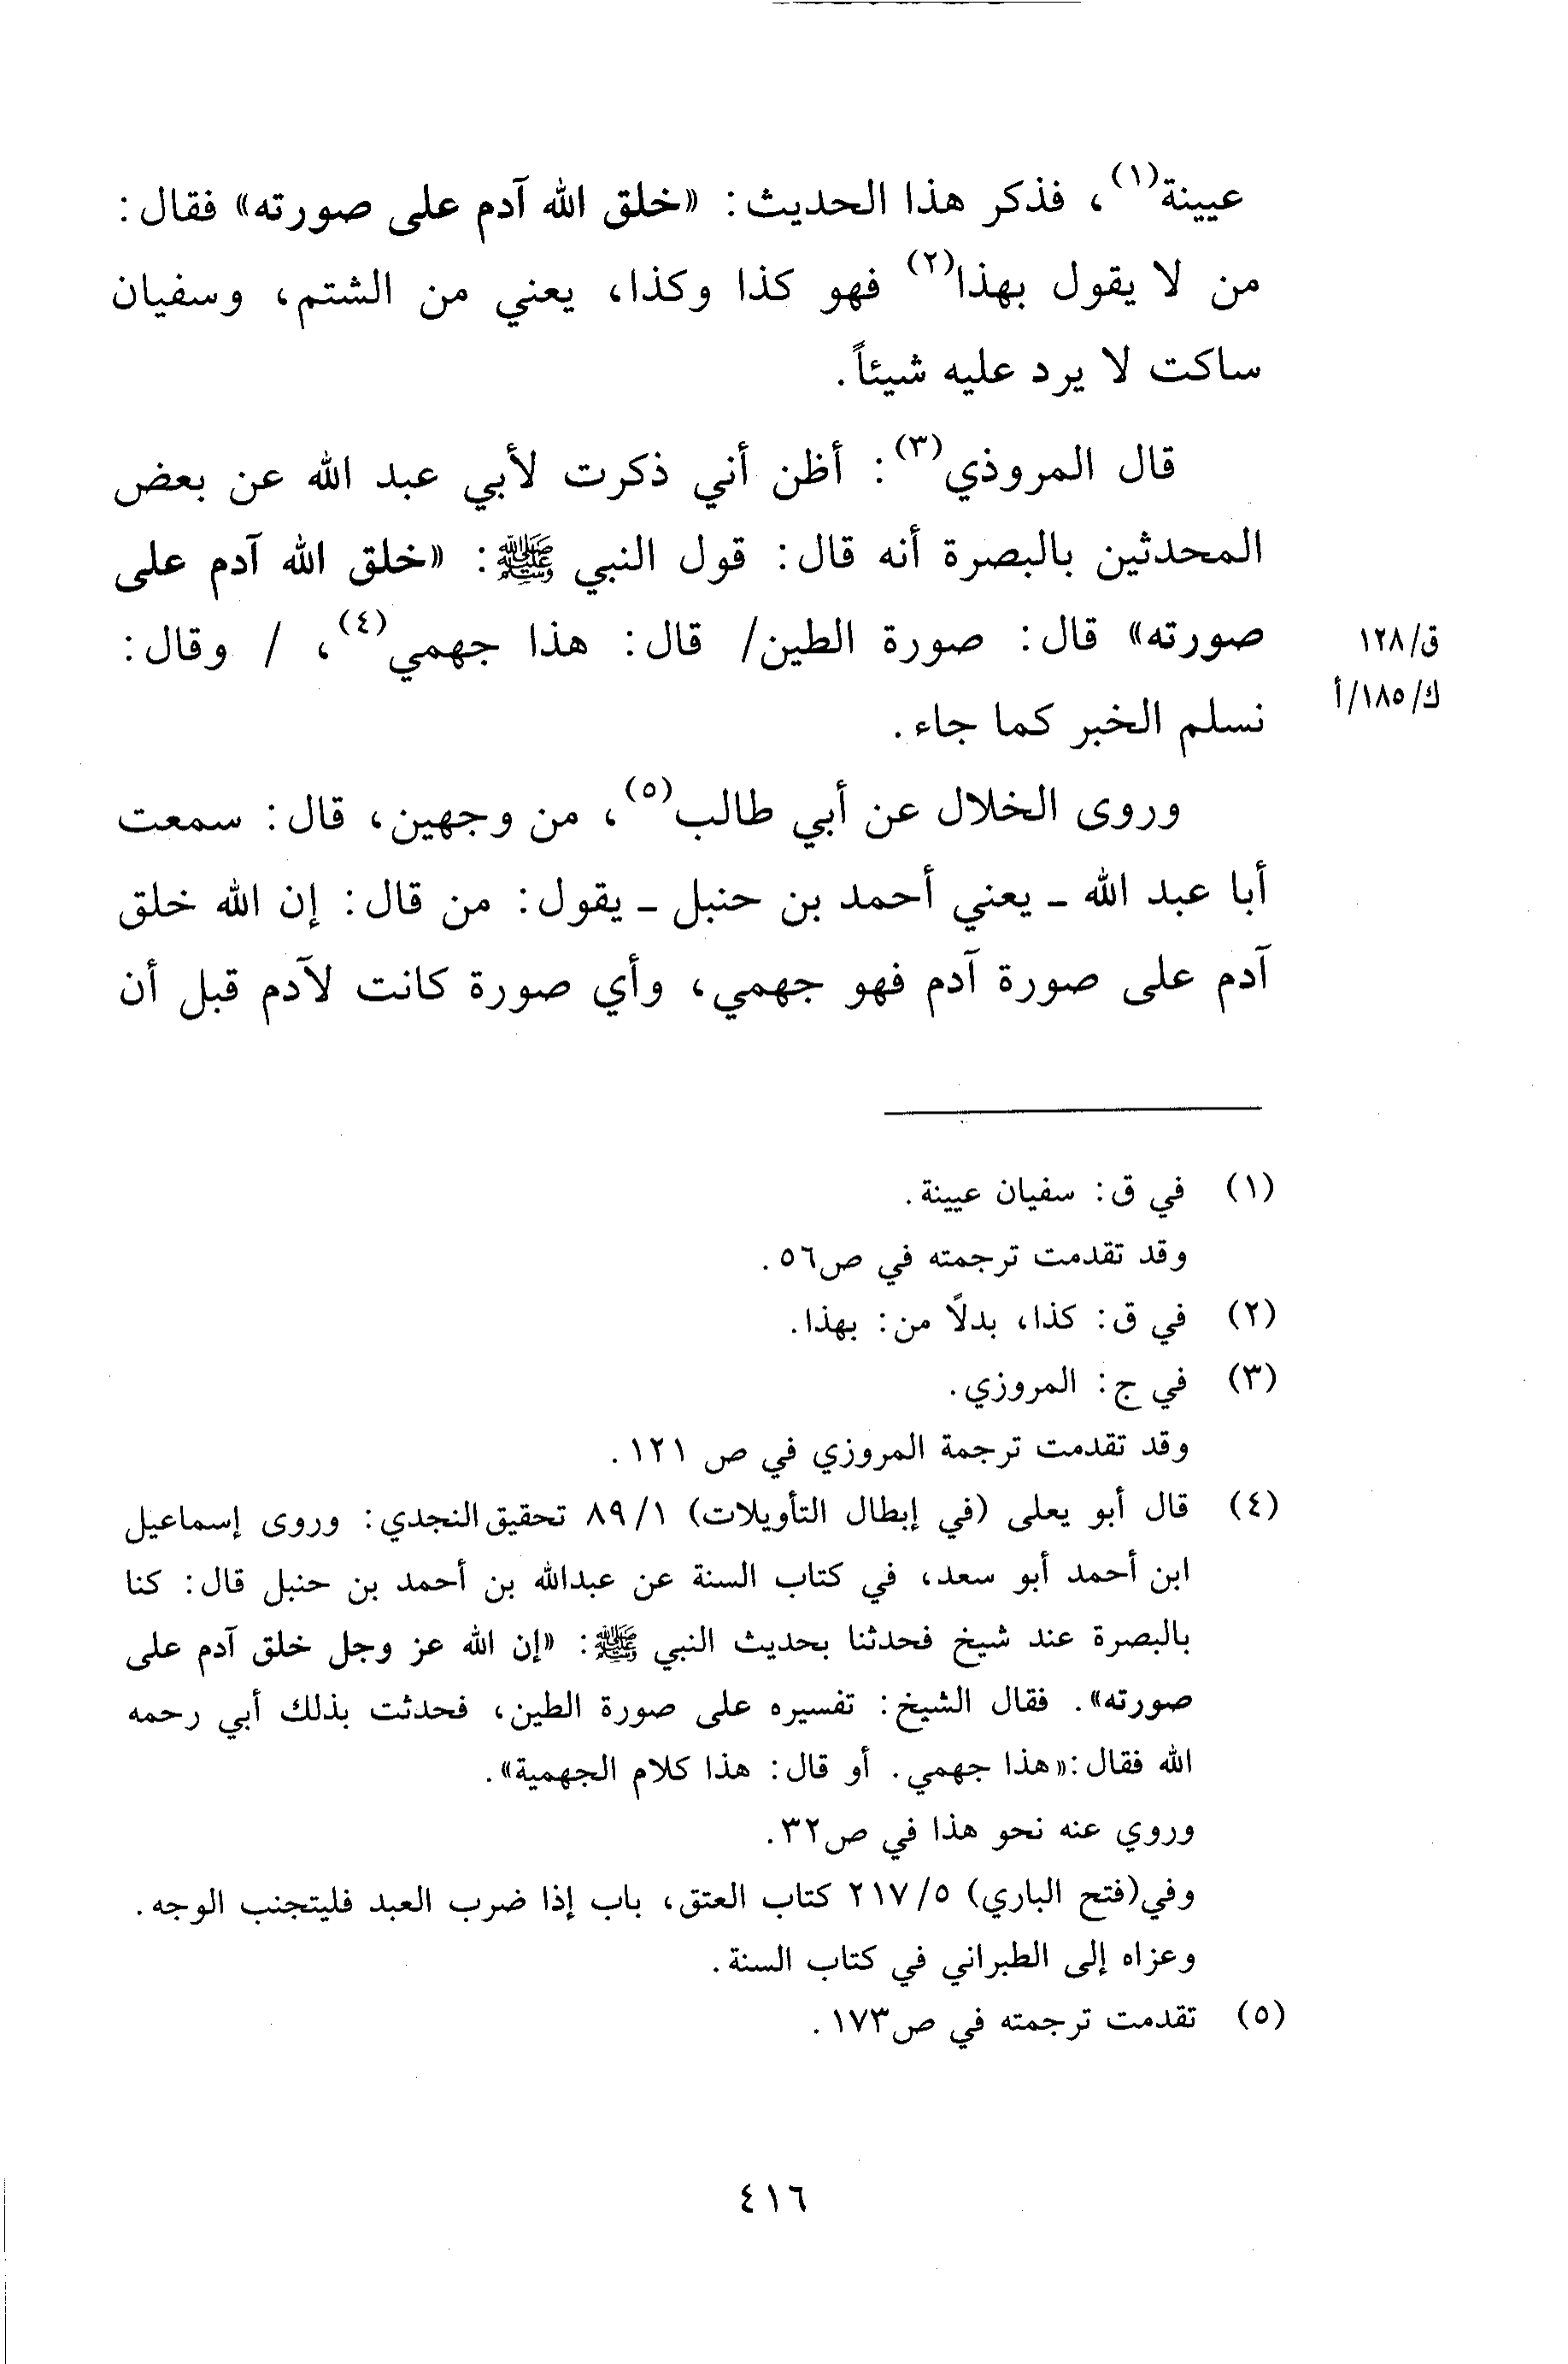 عيينة(١)، فذكر هذا الحديث: «خلق الله آدم على صورته» فقال:
من لا يقول بهذا(٢) فهو كذا وكذا، يعني من الشتم، وسفيان
ساكت لا يرد عليه شيئاً.
قال المروذي(٣): أظن أني ذكرت لأبي عبد الله عن بعض
المحدثين بالبصرة أنه قال: قول النبي ﷺ: «خلق الله آدم على
صورته» قال: صورة الطين/ قال: هذا جهمي(٤)، / وقال:
ق/١٢٨
ك/١٨٥/أ
نسلم الخبر كما جاء.
وروى الخلال عن أبي طالب(٥)، من وجهين، قال: سمعت
أبا عبد الله ـ يعني أحمد بن حنبل ـ يقول: من قال: إن الله خلق
آدم على صورة آدم فهو جهمي، وأي صورة كانت لآدم قبل أن
(١) في ق: سفيان عيينة.
وقد تقدمت ترجمته في ص٥٦.
(٢) في ق: كذا، بدلًا من: بهذا.
(٣) في ج: المروزي.
وقد تقدمت ترجمة المروزي في ص ١٢١.
(٤) قال أبو يعلى (في إبطال التأويلات) ٨٩/١ تحقيق النجدي: وروى إسماعيل
ابن أحمد أبو سعد، في كتاب السنة عن عبدالله بن أحمد بن حنبل قال: كنا
بالبصرة عند شيخ فحدثنا بحديث النبي ﷺ: «إن الله عز وجل خلق آدم على
صورته». فقال الشيخ: تفسيره على صورة الطين، فحدثت بذلك أبي رحمه
الله فقال:«هذا جهمي. أو قال: هذا كلام الجهمية».
وروي عنه نحو هذا في ص٣٢.
وفي(فتح الباري) ٢١٧/٥ كتاب العتق، باب إذا ضرب العبد فليتجنب الوجه.
وعزاه إلى الطبراني في كتاب السنة.
(٥) تقدمت ترجمته في ص١٧٣.
٤١٦